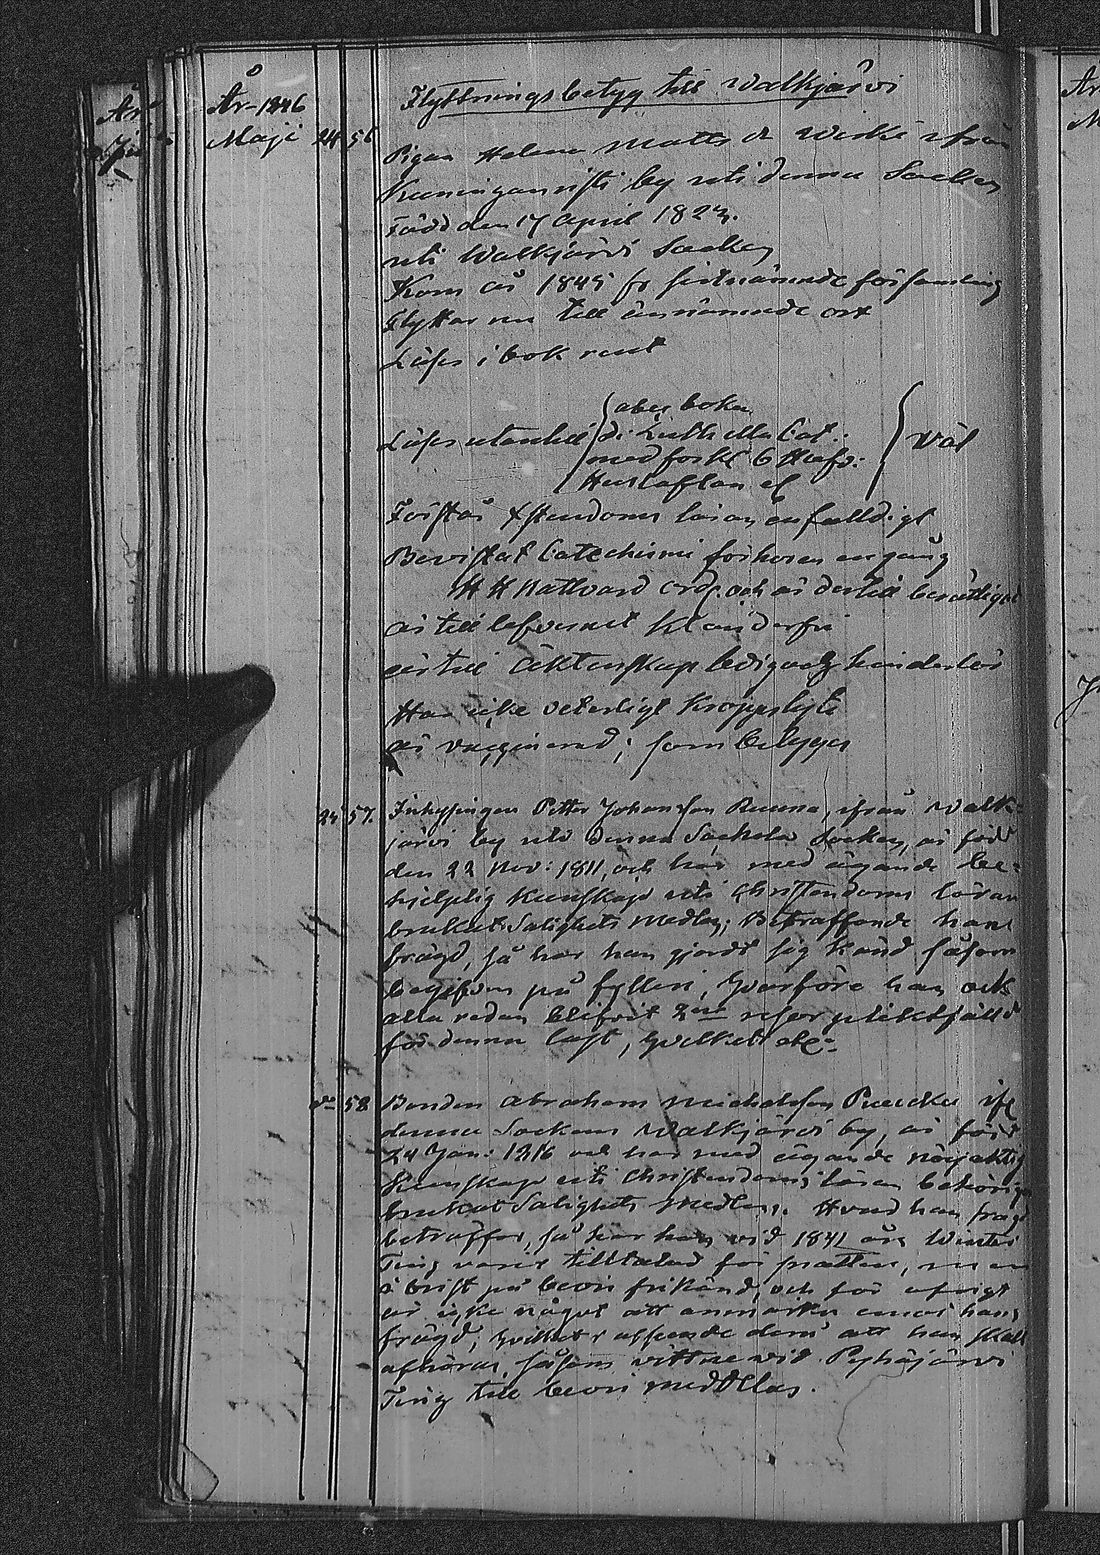 År 1846
Maji 24 56
Flyttningsbetyg till Walkjärvi
Pigan Helena Matts dr ifrån
by uti denna Socken
Född den 17 April 1823.
uti Walkjärvi Socken
Kom år 1845 fr sistnämnde församling
Flyttar nu till ännämnde ort
Läser i bok rent
Läser utantill
abc boken
di: Luth. lilla Cat.:
med förkl 6 Hufv:
Hustaflan
väl
Förstår Xstendoms läran enfalldigt
Bevistat Catechismi förhören en gång
H H Nattvard och är dertill berättigad
är till lefvernet Klanderfri
är till äktenskap ledig och hinderlös
Har icke veterligt Kroppslyte
är vaccinerad; som betygar
24 57. Inhysingen Petter Johansson ifrån Walk-
järvi by uti denna Sockn, är född
den 22 Nov: 1811, och har med ägande be-
hjelplig Kunskap uti Christendoms läran
brukat Salighets Medlen; Beträffande hans
frägd, så har han gjordt sig Känd såsom
begifven på fylleri, hvarföre han ock
alla redan blifvit 2ne resor pliktfälld
för denna last, hvilket etc:
do 58 Bonden Abraham Michelsson ifr
denna Sockens Walkjärvi by, är född
24 Jan: 1816 och har med ägande nöjaktig
Kunskap uti Christendoms läran behörigen
brukat Salighets Medlen. Hvad han frägd
beträffar, så har han vid 1841 års Winter
Ting varit tilltalad för snatteri, men
i brist på bevis frikänd, och för öfrigt
är icke något att anmärka emot hans
frägd, hvilket i afseende derå att han skall
afhöras såsom vittne vid Pyhäjärvi
Ting till bevis meddelas.